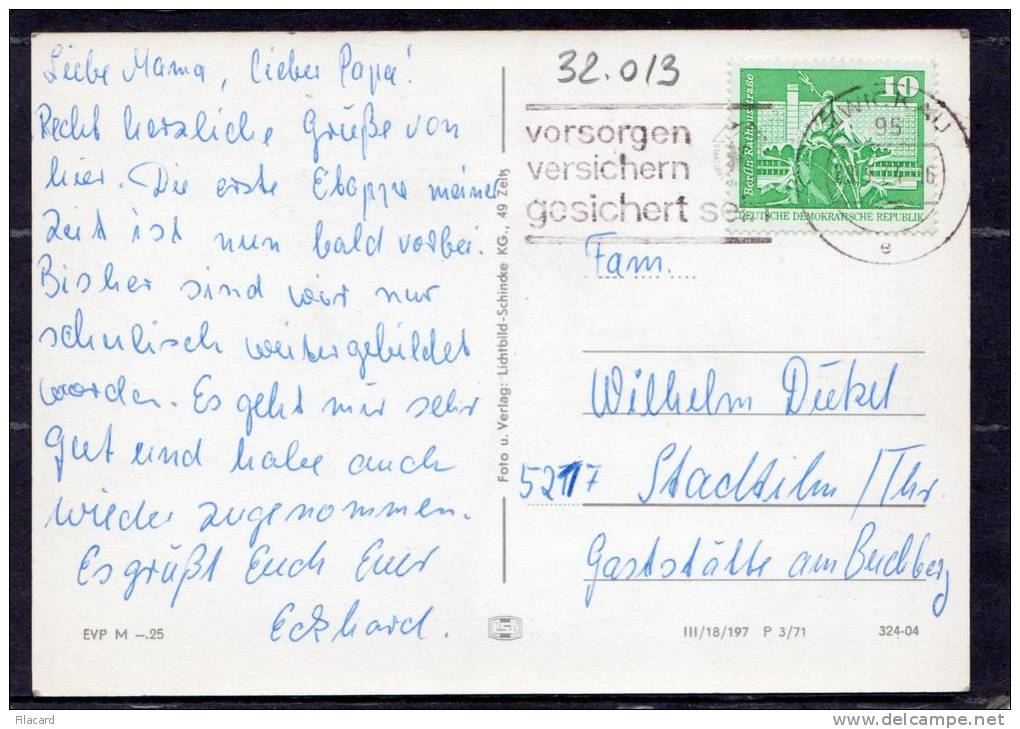 Liebe Mama, lieber Papa!
Recht herzliche Grüße von
hier. Die erste Etappe meiner
Zeit ist nun bald vorbei.
Bisher sind wir nur
schulisch weitergebildet
worden. Es geht mir sehr
gut und habe auch
wieder zugenommen.
Es grüßt Euch Euer
Eckhard.
EVP M –.25
Foto u. Verlag: Lichtbild-Schincke KG., 49 Zeitz
32.013
vorsorgen
versichern
gesichert se
10
Berlin-Rathausstraße
DEUTSCHE DEMOKRATISCHE REPUBLIK
ZWICKAU
95
e
Fam.
Wilhelm
5217 Stadtilm / Thr.
Gaststätte am Buchberg
III/18/197 P 3/71 324-04
Filacard
www.delcampe.net